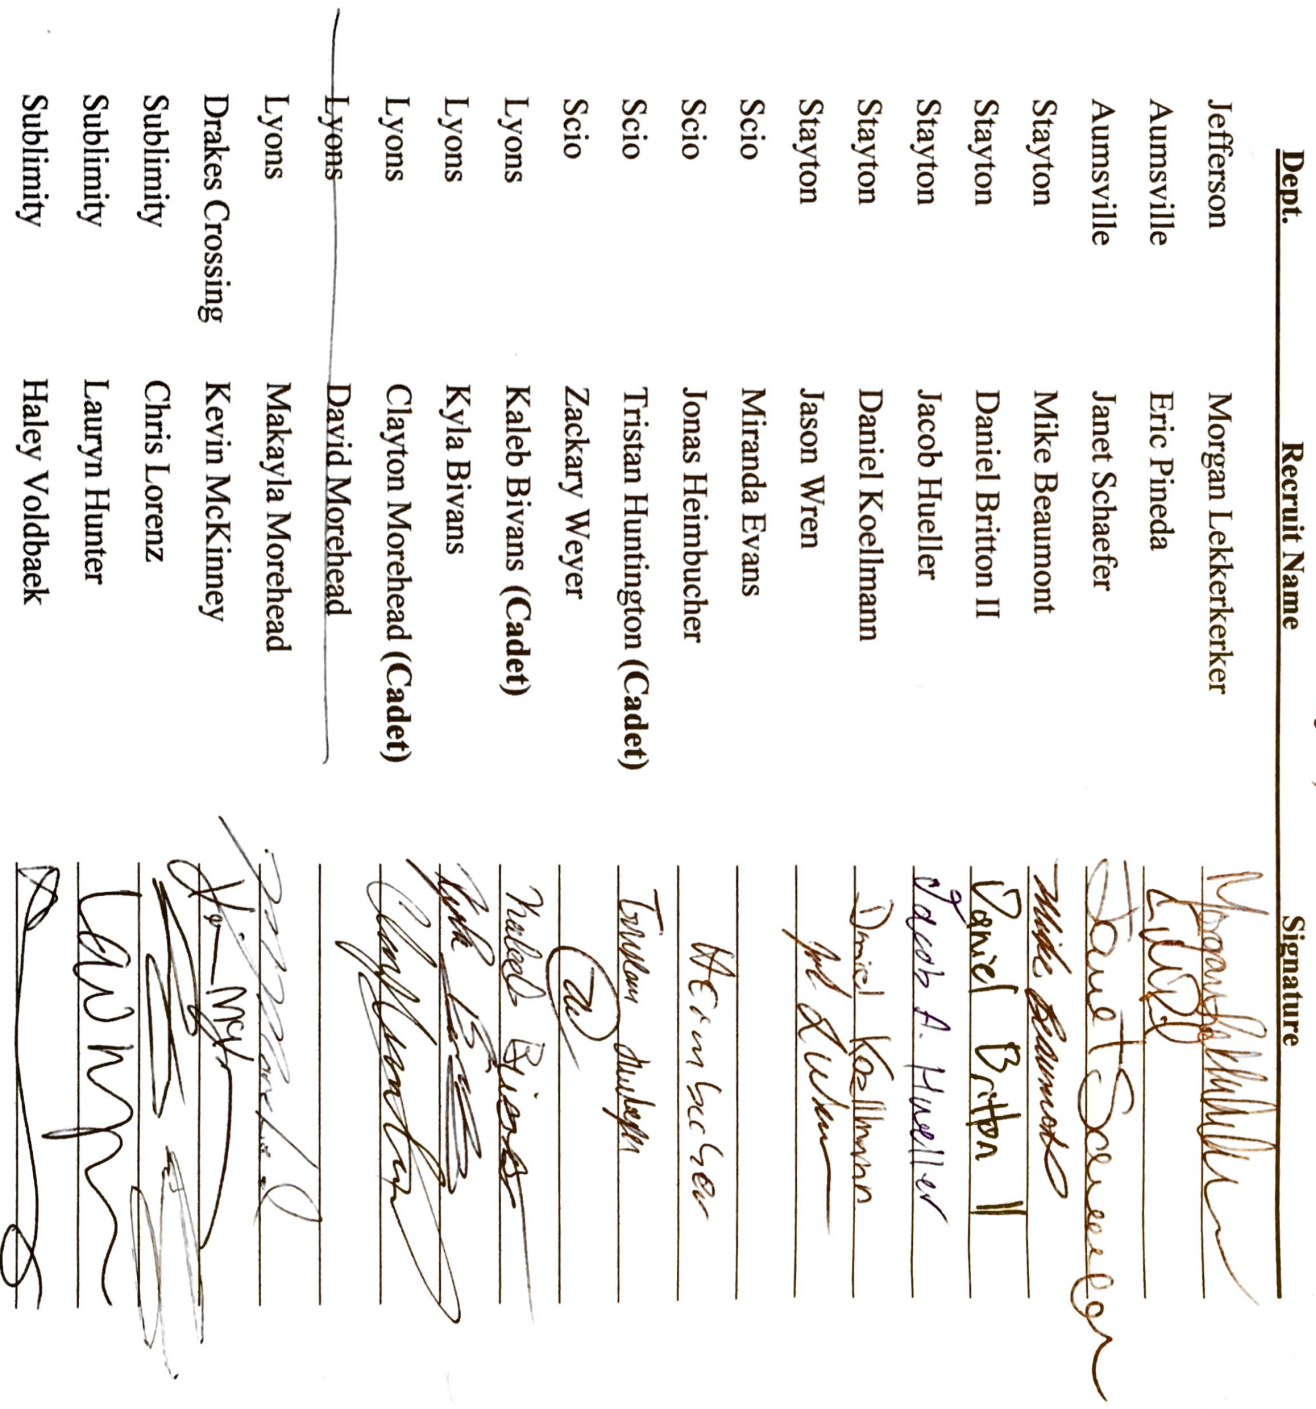 Dept. Recruit Name Signature
Jefferson Morgan Lekkerkerker
Aumsville Eric Pineda
Aumsville Janet Schaefer Janet Schaefer
Stayton Mike Beaumont Mike Beaumont
Stayton Daniel Britton II Daniel Britton II
Stayton Jacob Hueller Jacob A. Hueller
Stayton Daniel Koellmann Daniel Koellmann
Stayton Jason Wren
Scio Miranda Evans
Scio Jonas Heimbucher Heimbucher
Scio Tristan Huntington (Cadet) Tristan
Scio Zackary Weyer
Lyons Kaleb Bivans (Cadet) Kaleb Bivans
Lyons Kyla Bivans Kyla
Lyons Clayton Morehead (Cadet)
Lyons David Morehead
Lyons Makayla Morehead
Drakes Crossing Kevin McKinney
Sublimity Chris Lorenz
Sublimity Lauryn Hunter
Sublimity Haley Voldbaek